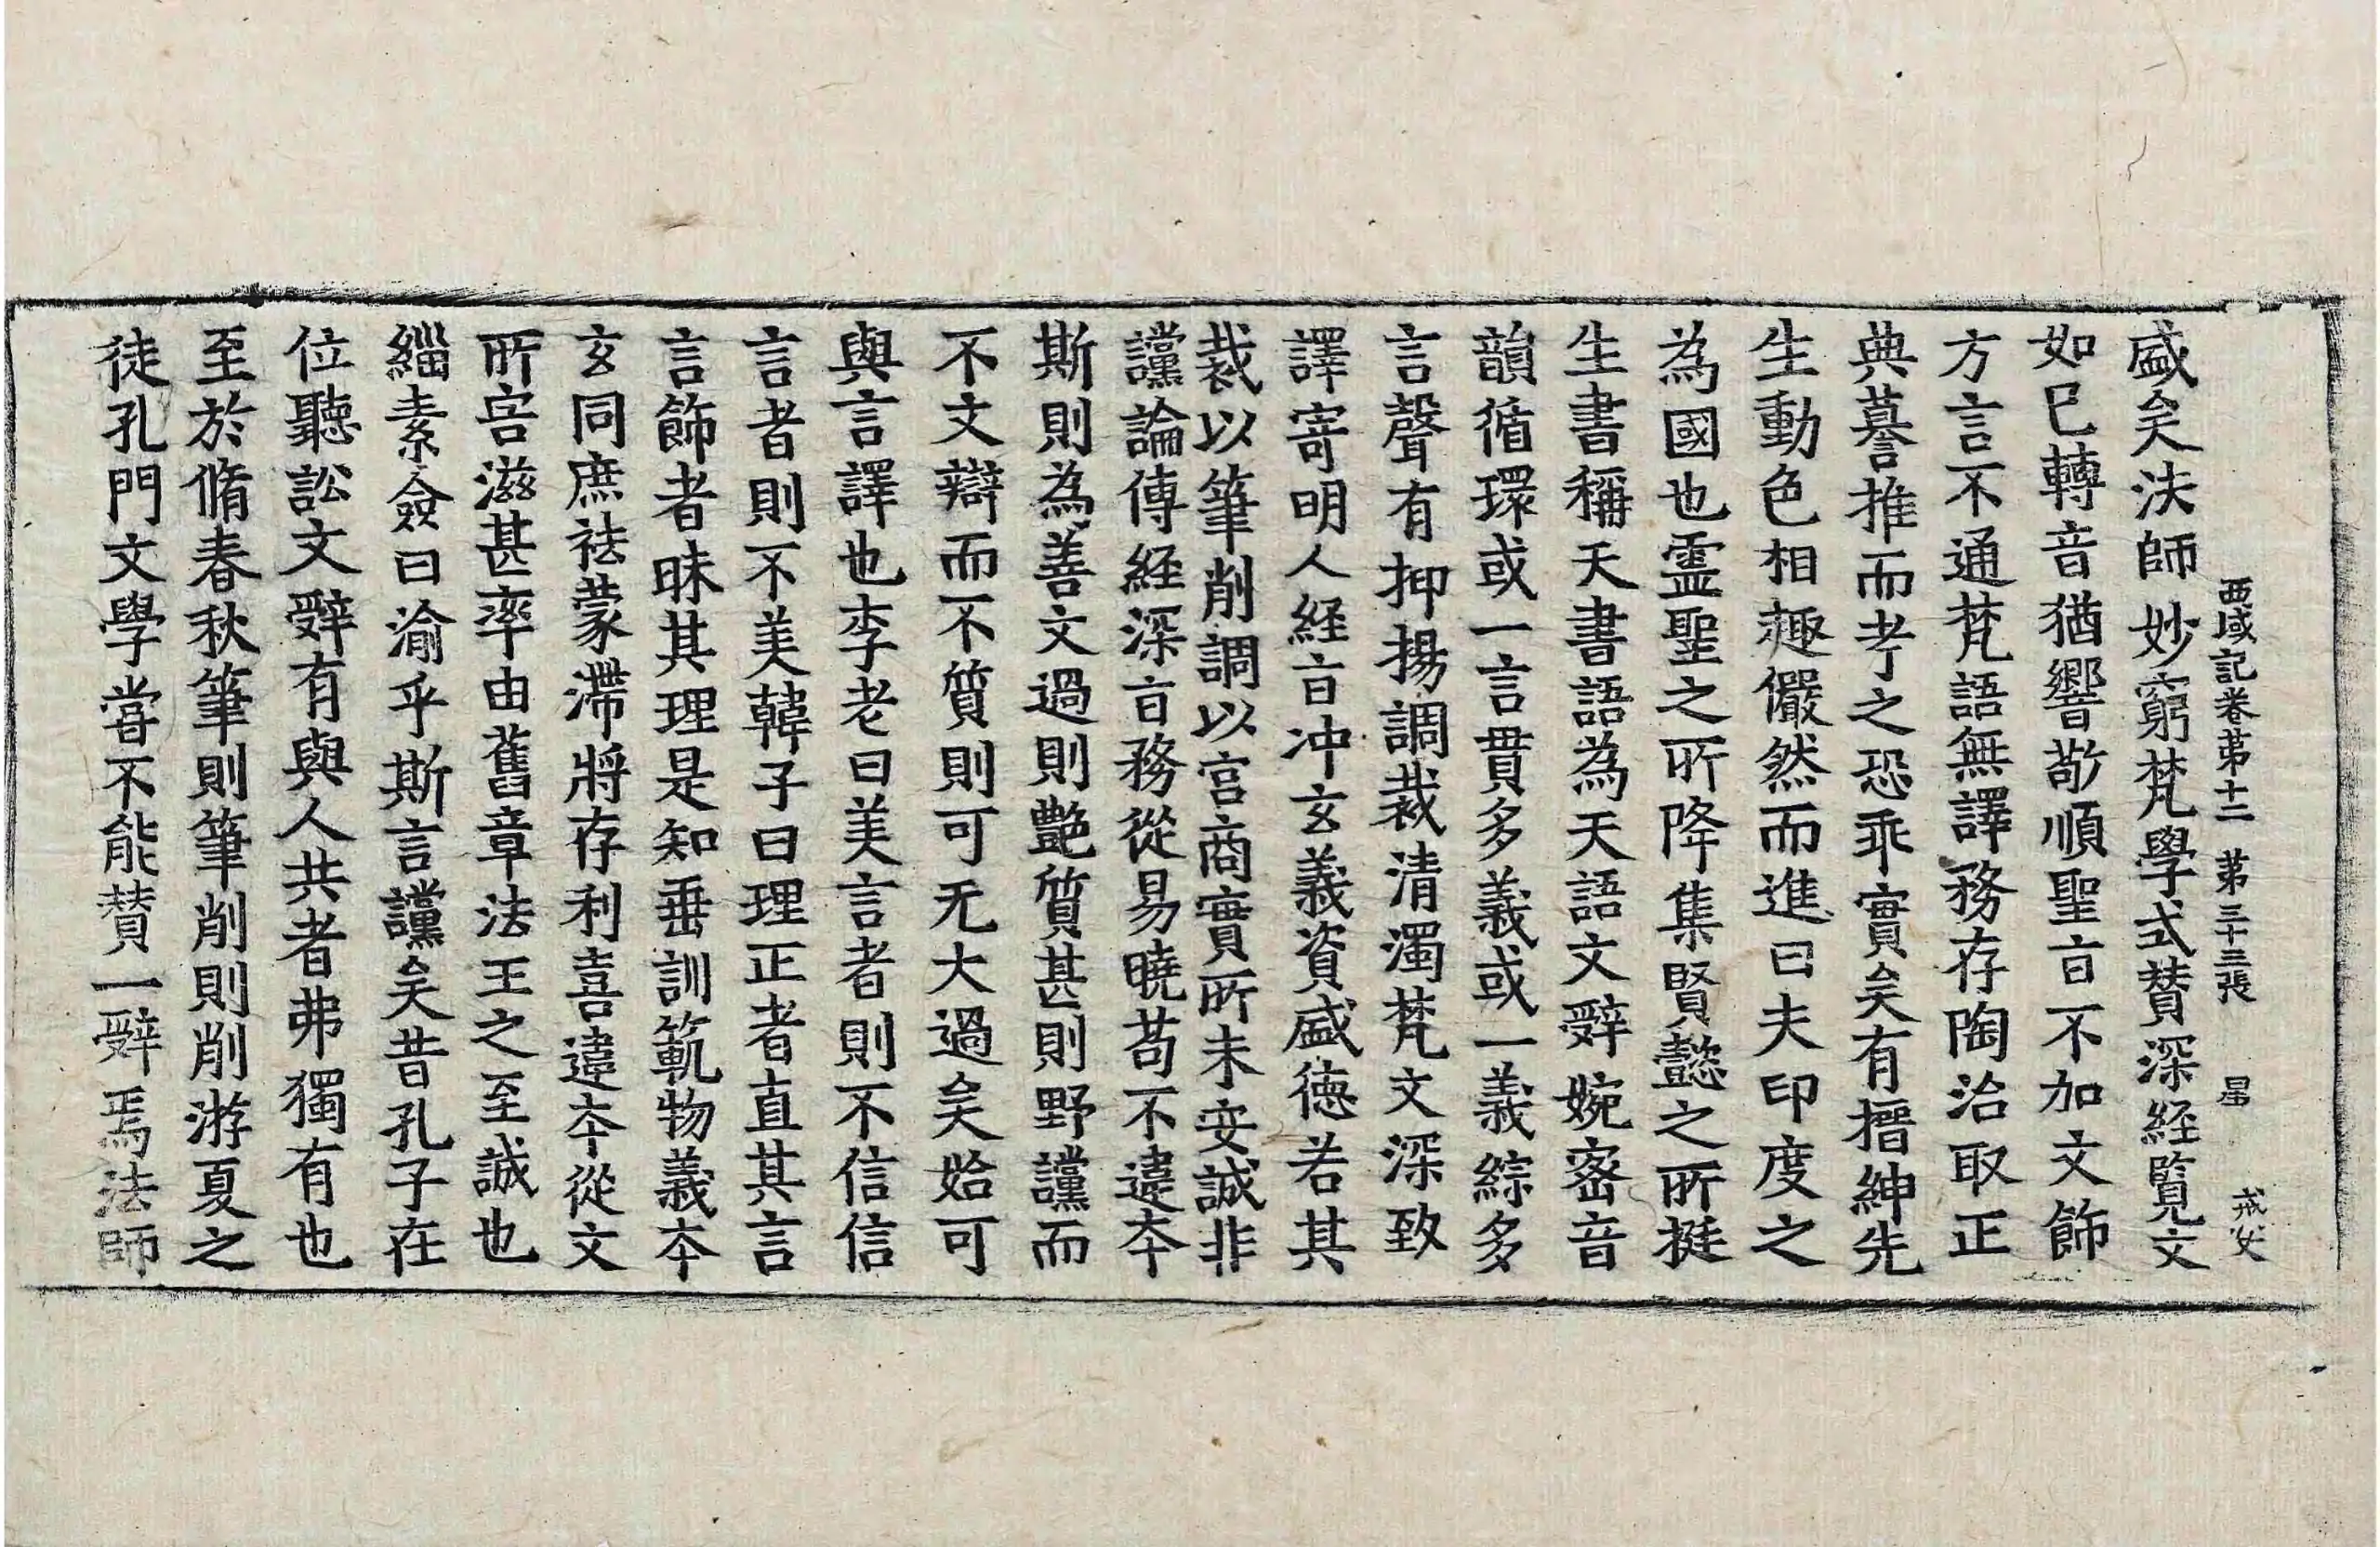 西域記卷苐十二 苐三十三張 㫤 戒安
盛矣法師妙窮梵學式賛深経覧文
如已轉音猶響敬順聖㫖不加文飾
方言不通梵語無譯務存陶冶取正
典謩推而考之恐乖實矣有搢紳先
生動色相趣儼然而進曰夫印度之
為國也霊聖之所降集賢懿之所挺
生書稱天書語為天語文辤婉宻音
韻循環或一言貫多義或一義綜多
言聲有抑揚調裁清濁梵文深致
譯寄明人経㫖冲玄義資盛徳若其
裁以筆削調以宮商實所未安誠非
讜論傳経深㫖務從易曉苟不違夲
斯則為善文過則艶質甚則野讜而
不文辯而不質則可无大過矣始可
與言譯也李老曰美言者則不信信
言者則不美韓子曰理正者直其言
言飾者昧其理是知垂訓範物義夲
玄同庶袪蒙滯將存利喜違夲從文
所害滋甚率由舊章法王之至誠也
緇素僉曰渝乎斯言讜矣昔孔子在
位聽訟文辤有與人共者弗獨有也
至於脩春秋筆則筆削則削游夏之
徒孔門文學甞不能賛一辤焉法師